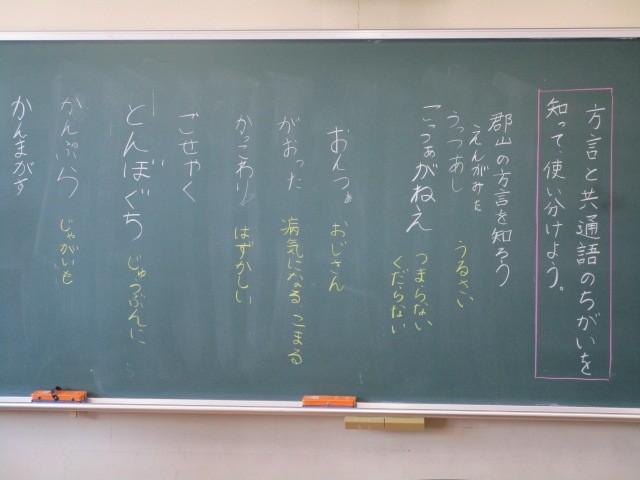 方言と共通語のちがいを
知って、使い分けよう。
郡山の方言を知ろう
えんがみた
うっつぁし うるさい
こっつぁがねえ つまらない
くだらない
おんつぁ おじさん
がおった 病気になる こまる
かっこわり はずかしい
ごせやく
とんぼぐち じゅうぶんに
かんぷら じゃがいも
かんまがす